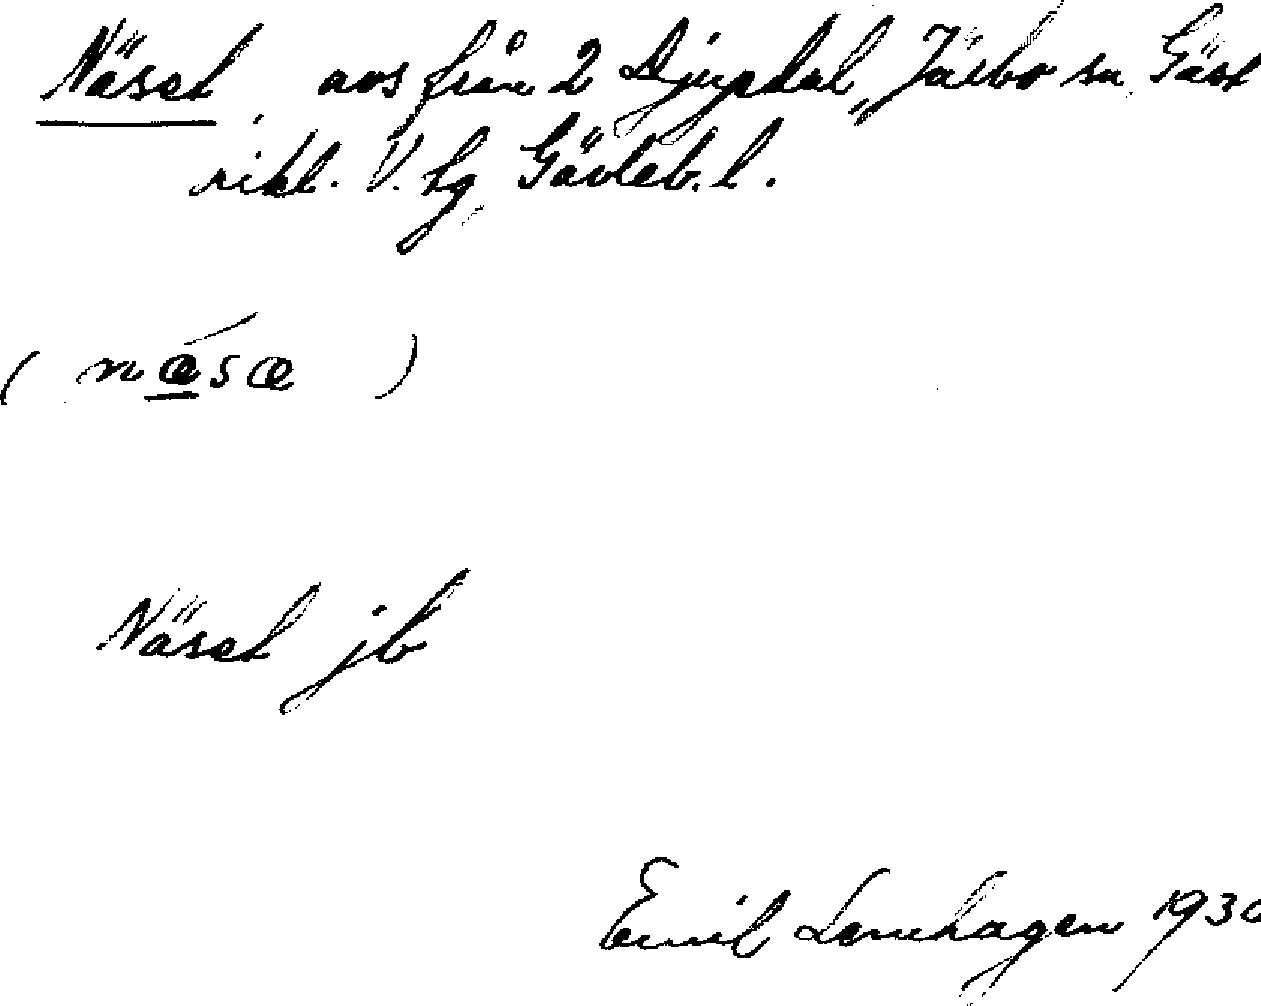 Näset, avs från 2 Djupdal, Järbo sn, Gästrikl. V. hg, Gävleb. l.
(nǽ̲sæ)
Näset jb
Emil Lennhagen 1930